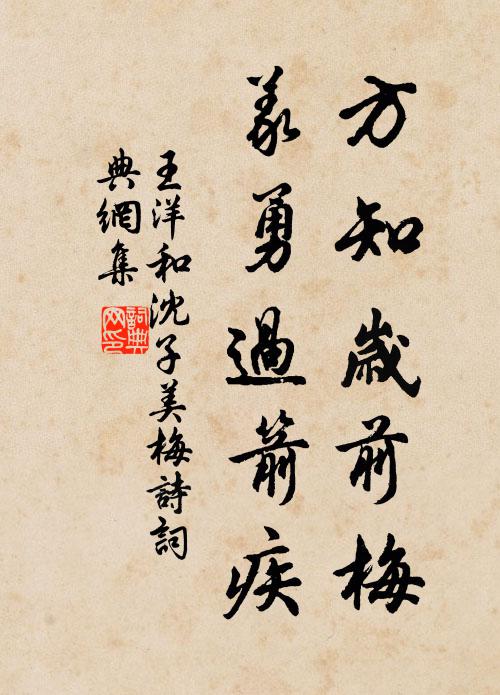 方知歲前梅
義勇過箭疾
王洋和沈子美梅詩詞
典網集
詞典網印